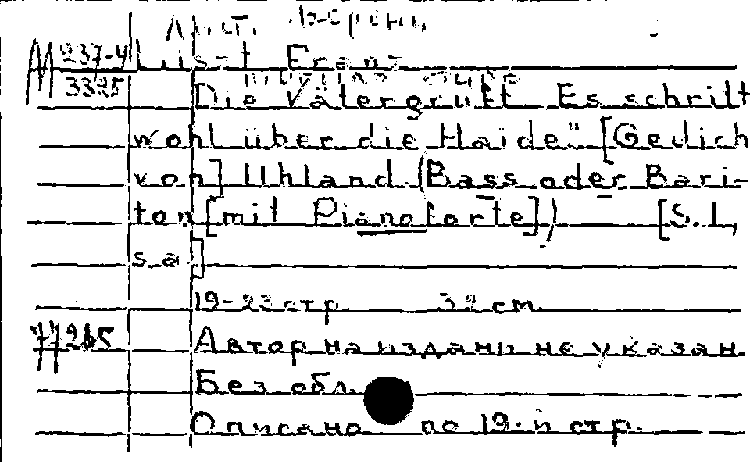 Лист, Ференц
M 237-4 Liszt Franz
3325 Die Vätergruft "Es schritt
wohl über die Haide" [Gedich
von] Uhland (Bass oder Bari-
ton [mit Pianoforte]) [S. l,
s a]
19-23 стр 32 cm
77265 Автор на издани не указан
Без обл.
Описано по 19-й стр.